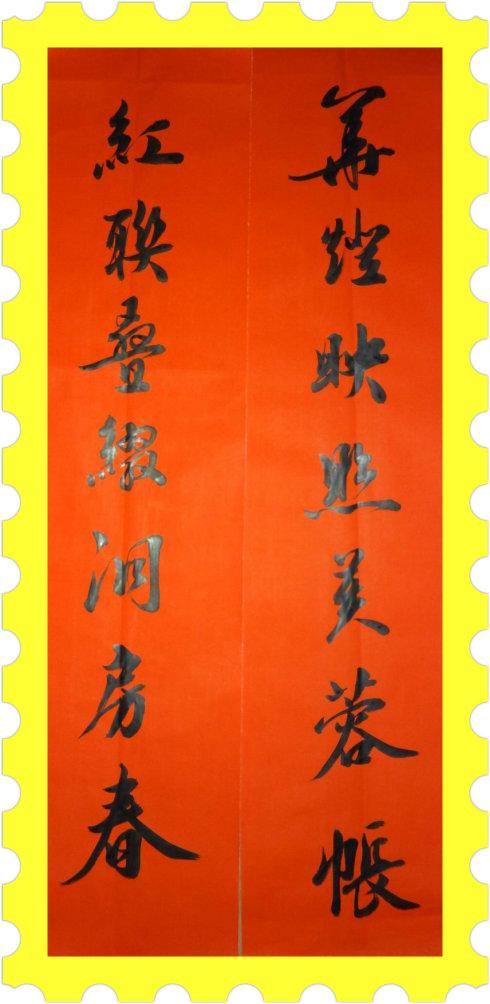 華燈映照芙蓉帳
紅聯疊綴洞房春